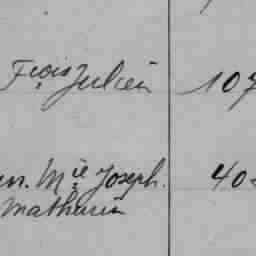 Fçois Julien 107
M.ie Joseph. 40
Mathurin